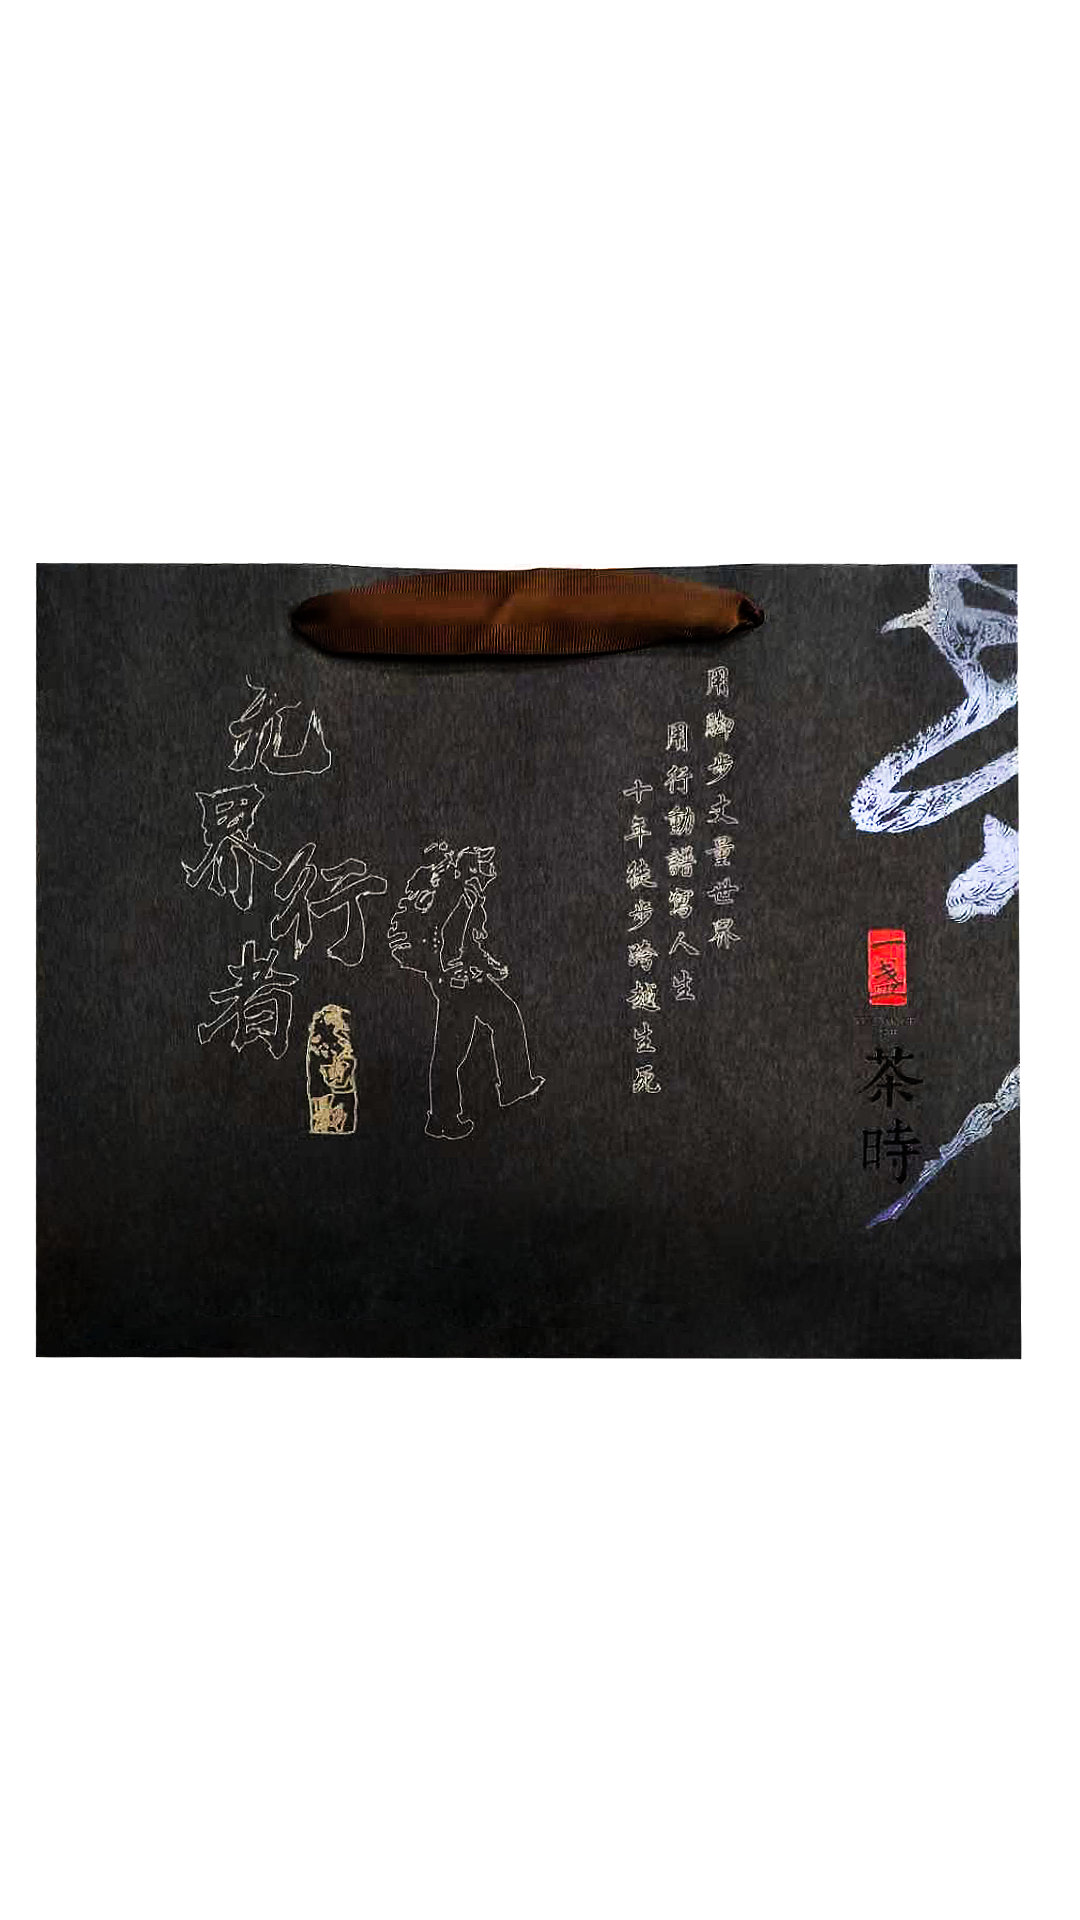 用脚步丈量世界
用行動譜寫人生
十年徒步跨越生死
无界行者
一盏
茶時